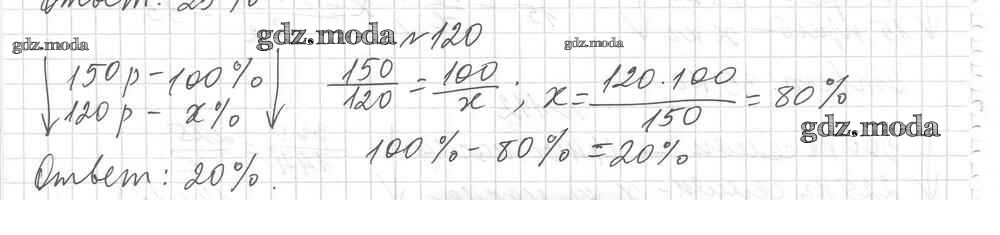 Ответ: 25%
gdz.moda gdz.moda №120 gdz.moda
150 р - 100% 150/120 = 100/x ; x = 120·100/150 = 80%
120 р - x%
gdz.moda
100% - 80% = 20%
Ответ: 20%.